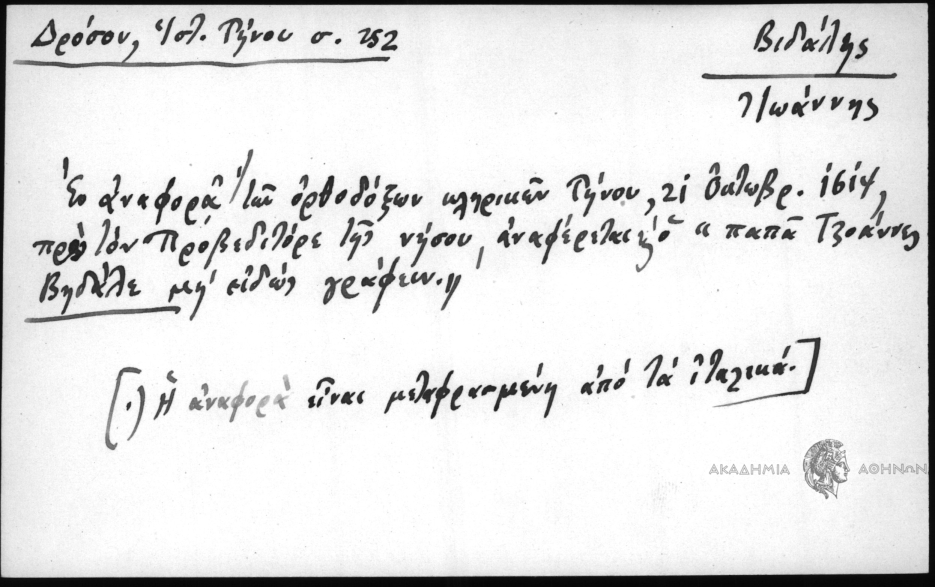 Δρόσου, Ἱστ. Τήνου σ. 252
Βιδάλης
Ἰωάννης
Ἐν ἀναφορᾷ τῶν ὀρθοδόξων κληρικῶν Τήνου, 21 Ὀκτωβρ. 1614,
πρὸς τὸν Προβεδιτόρε τῆς νήσου, ἀναφέρεται ὁ "παπᾶ Τζοάννες
Βηδάλε μή εἰδώς γράφειν."
[(.) Ἡ ἀναφορὰ εἶναι μεταφρασμένη ἀπό τά ἰταλικά.]
ΑΚΑΔΗΜΙΑ ΑΘΗΝΩΝ